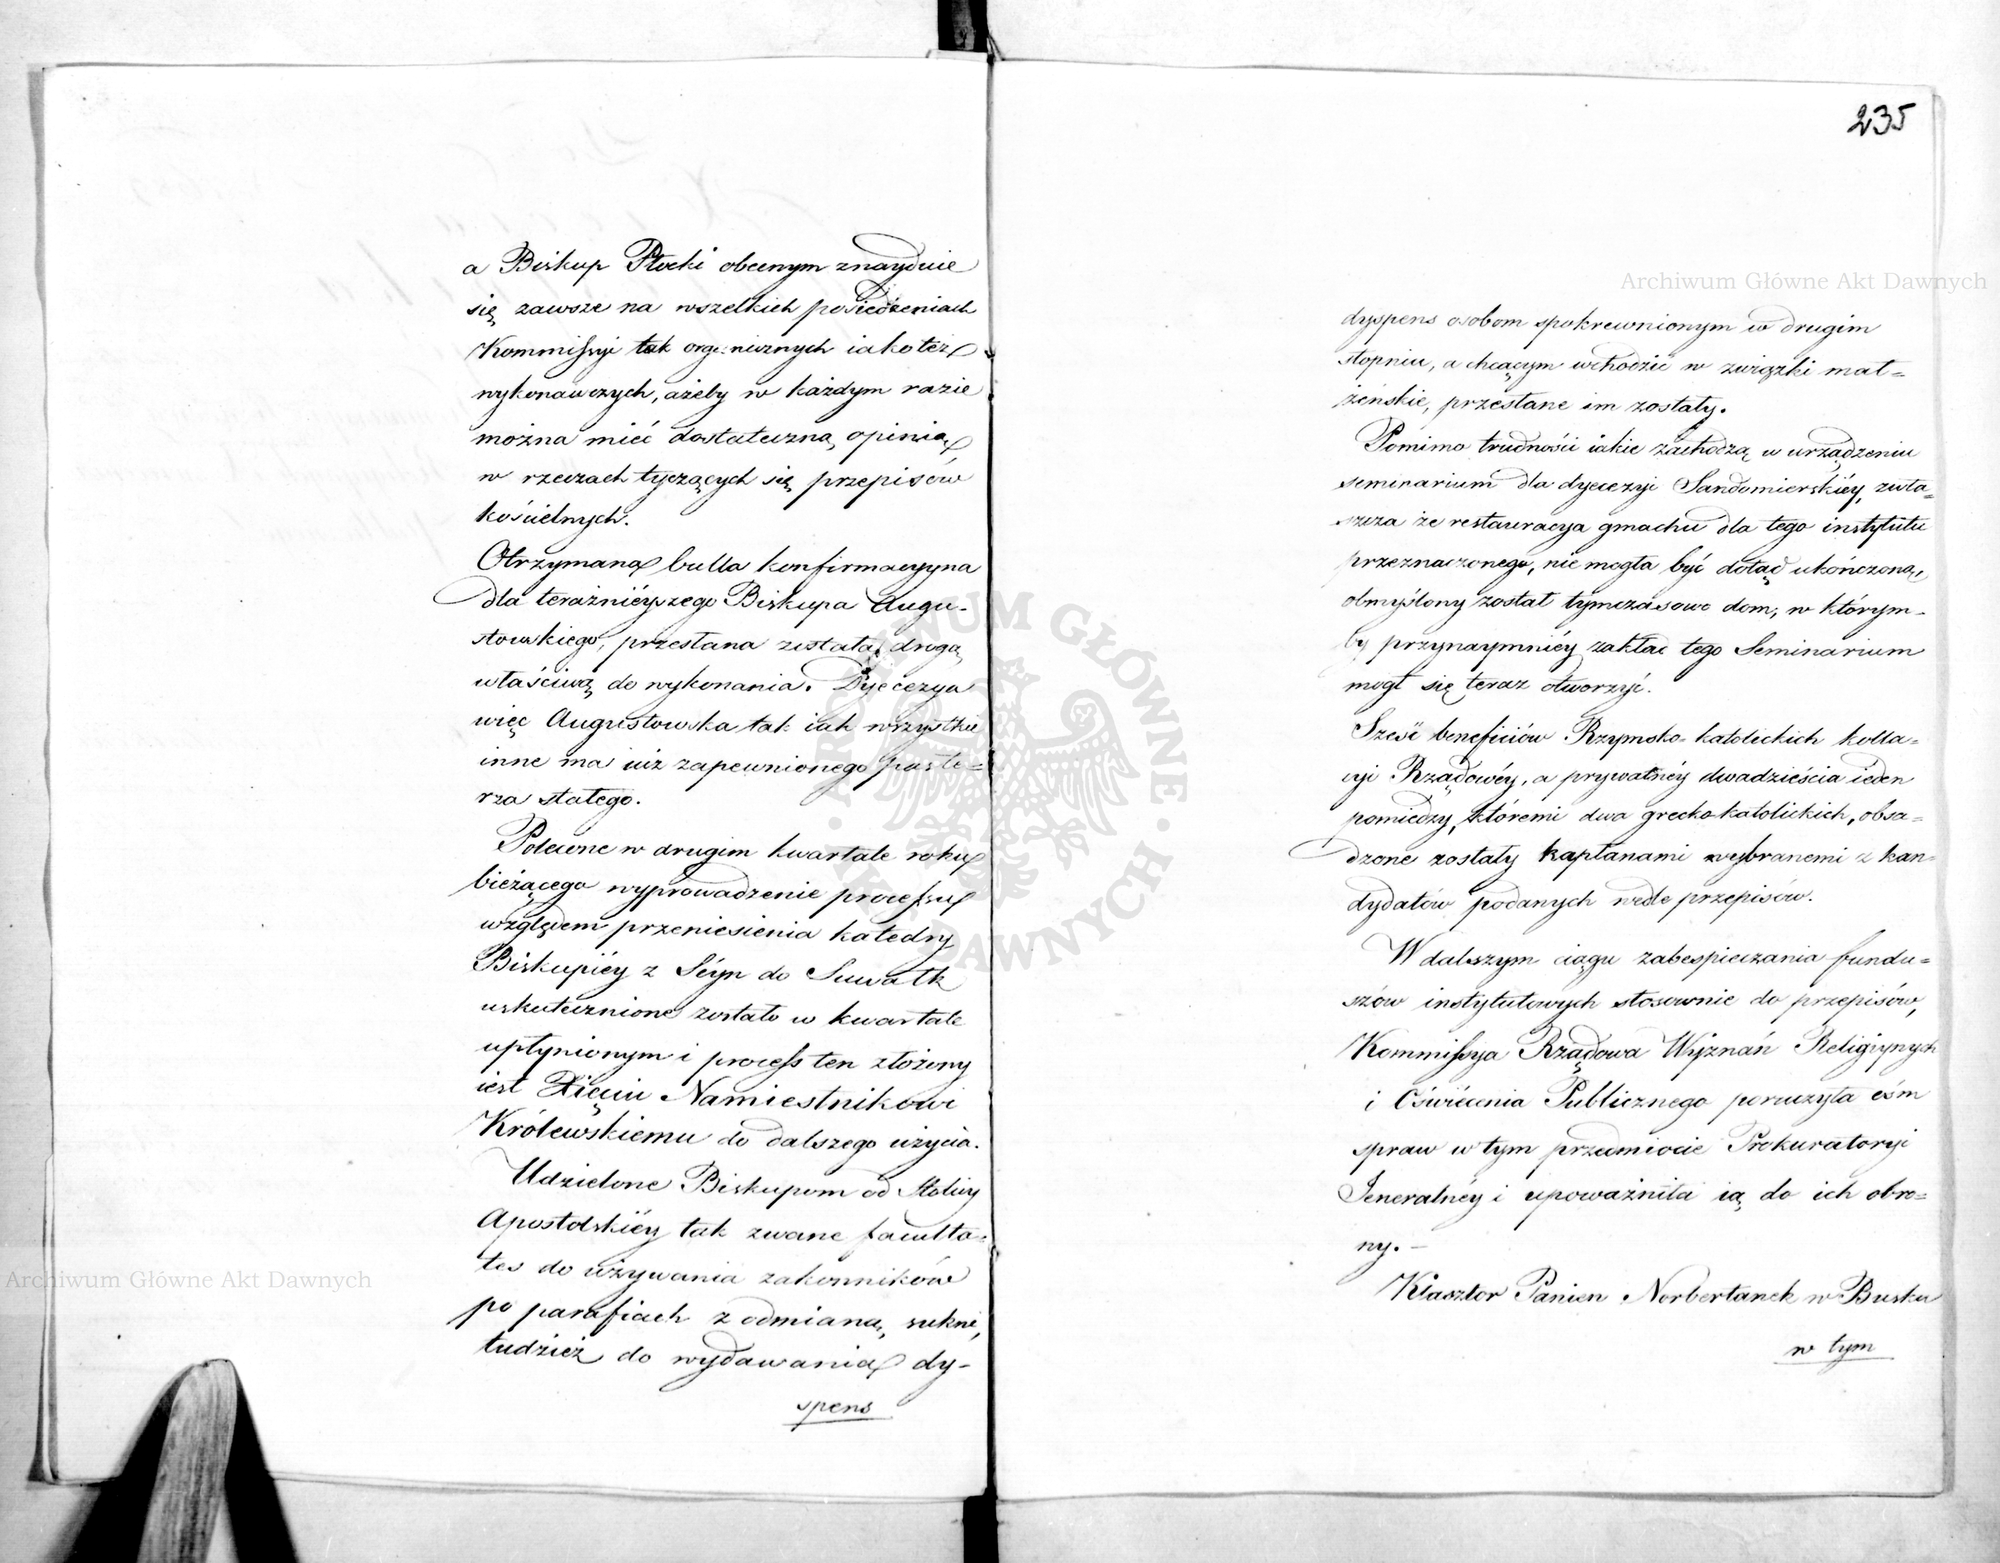 a Biskup Płocki obecnym znayduie
się zawsze na wszelkich posiedzeniach
Kommissyi tak organicznych iakoteż
wykonawczych, ażeby w każdym razie
można mieć dostateczną opinią
w rzeczach tyczących się przepisów
kościelnych.
Otrzymana bulla konfirmacyyna
dla teraźnieyszego Biskupa Augu-
stowskiego, przesłana została drogą
właściwą do wykonania. Dyecezya
więc Augustowska tak iak wszystkie
inne ma iuż zapewnionego paste=
rza stałego.
Polecone w drugim kwartale roku
bieżącego wyprowadzenie processu
względem przeniesienia katedry
Biskupiéy z Séyn do Suwałk
uskutecznione zostało w kwartale
upłynionym i process ten złożony
iest Xięciu Namiestnikowi
Królewskiemu do dalszego użycia.
Udzielone Biskupom od Stolicy
Apostolskiéy tak zwane faculta=
tes do używania zakonników
po parafiach z odmianą sukni,
tudzież do wydawania dy-
spens
235
dyspens osobom spokrewnionym w drugim
stopniu, a chcącym wchodzić w związki mał=
żeńskie, przesłane im zostały.
Pomimo trudności iakie zachodzą w urządzeniu
seminarium dla dyecezyi Sandomierskiéy, zwła=
szcza że restauracya gmachu dla tego instytutu
przeznaczonego, nie mogła być dotąd ukończoną,
obmyślony został tymczasowo dom, w którym-
by przynaymniéy zakład tego Seminarium
mogł się teraz otworzyć.
Sześć beneficiów Rzymsko-katolickich kolla=
cyi Rządowéy, a prywatnéy dwadzieścia ieden
pomiedzy, któremi dwa grecko katolickich, obsa=
dzone zostały kapłanami wybranemi z kan=
dydatów podanych wedle przepisów.
W dalszym ciągu zabespieczania fundu=
szów instytutowych stosownie do przepisów,
Kommissya Rządowa Wyznań Religiynych
i Oświécenia Publicznego poruczyła ośm
spraw w tym przedmiocie Prokuratoryi
Jeneralnéy i upoważniła ią do ich obro=
ny. -
Klasztor Panien Norbertanek w Busku
w tym
Archiwum Główne Akt Dawnych
Archiwum Główne Akt Dawnych
ARCHIWUM GŁÓWNE AKT DAWNYCH